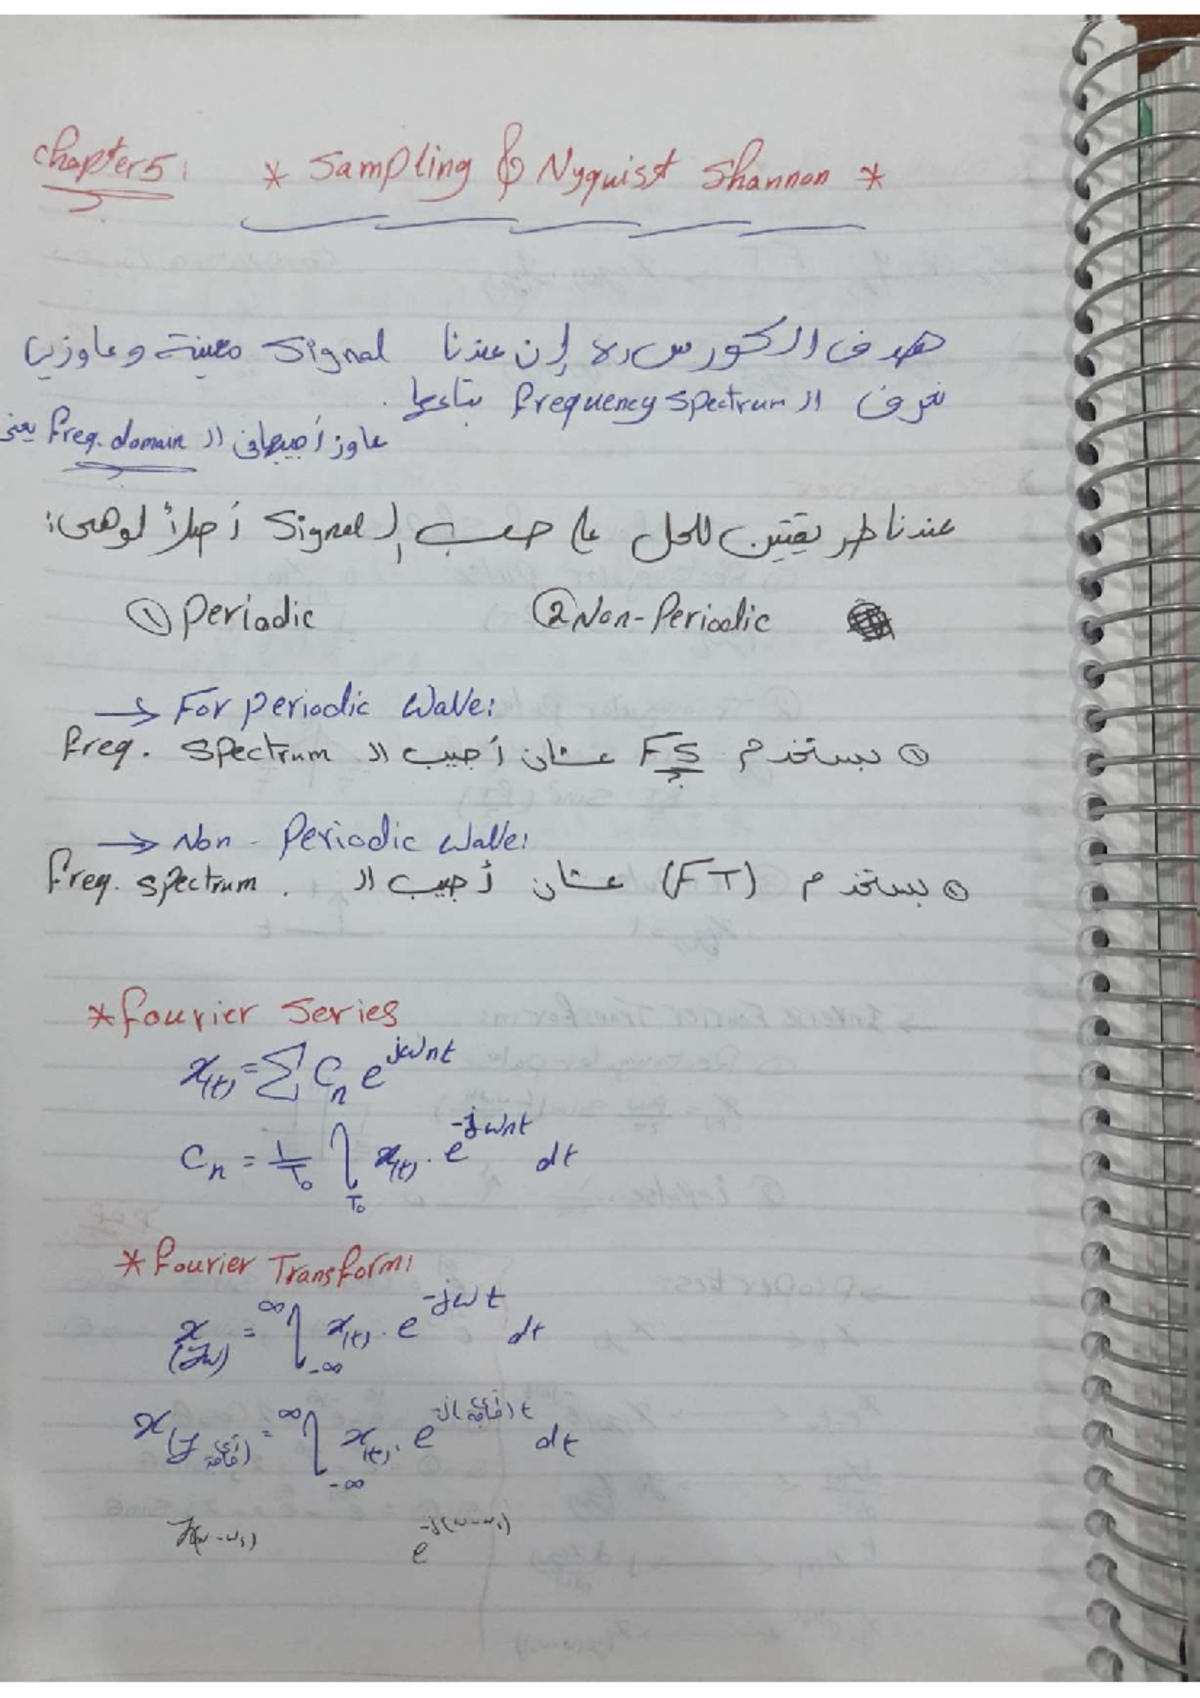 Chapter 5: * Sampling & Nyquist Shannon *
هدف الكورس ده إن عندنا Signal معينة وعاوزين
نعرف ال frequency spectrum بتاعها.
يعني عاوز أجيبها في ال freq. domain
عندنا طريقتين للحل على حسب ال Signal أصلاً لو هي:
① Periodic ② Non-Periodic
→ For Periodic Wave:
① بستخدم FS عشان أجيب ال freq. spectrum
→ Non-Periodic Wave:
① بستخدم (FT) عشان أجيب ال freq. spectrum.
* Fourier Series
x(t) = Σ Cn e^{jωnt}
Cn = 1/T₀ ∫_{T₀} x(t) . e^{-jωnt} dt
* Fourier Transform:
x(jω) = ∫_{-∞}^{∞} x(t) . e^{-jωt} dt
x(j أي حاجة) = ∫_{-∞}^{∞} x(t) . e^{-j(أي حاجة)t} dt
j(ω-ω₁) e^{-j(ω-ω₁)}